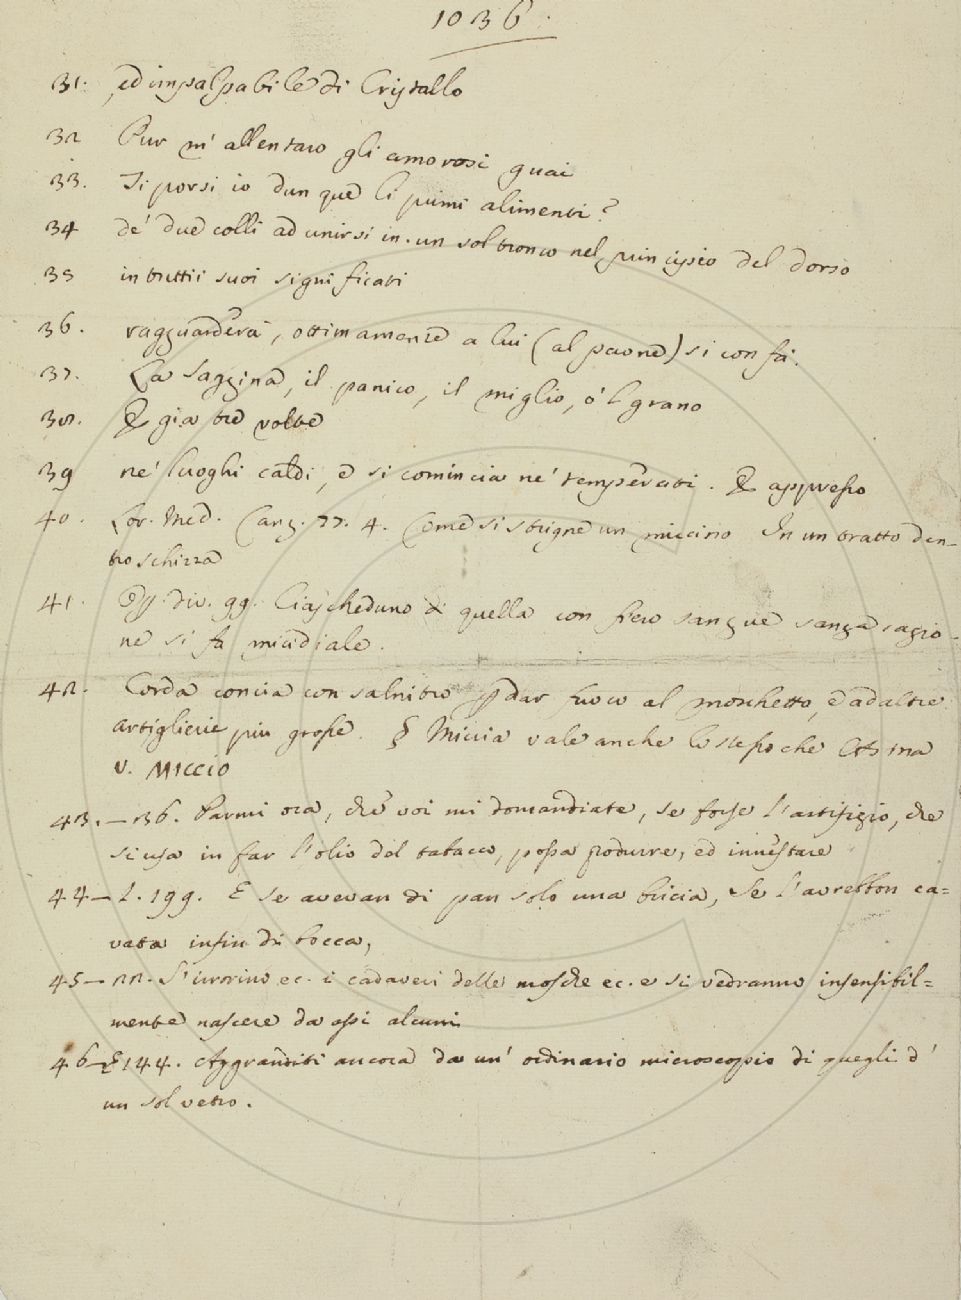 1036.
31. ed impalpabile di Cristallo
32 Pur m' allentaro gli amorosi guai
33. Ti porsi io dunque li primi alimenti?
34 de' due colli ad unirsi in un sol tronco nel principio del dorso
35 in tutti i suoi significati
36. ragguarderà, ottimamente a lui (al paone) si con fà.
37. La Saggina, il panico, il miglio, o 'l grano
38. E già tre volte
39 ne' luoghi caldi, e si comincia ne' temperati. E appresso
40. Lor. Med. Canz. 77. 4. Come si strigne un miccino In un tratto den-
tro schizza
41. div. 99. Ciascheduno di quella con fiero sangue sanza cagio-
ne si fa micidiale.
42. Corda concia con salnitro p dar fuoco al moschetto, e ad altre
artiglierie più grosse. § Miccia vale anche lo stesso che
v. MICCIO
43. — 36. Parmi ora, che voi mi domandiate, se forse l'artifizio, che
si usa in far l'olio del tabacco, possa produrre, ed innestare
44 — L. 199. E se avevan di pan solo una bricia, Se l'avrebbon ca=
vata infin di bocca,
45 — 22. S'irrorino ec. i cadaveri delle mosche ec. e si vedranno insensibil=
mente nascere da essi alcuni
46 — E 144. Aggranditi ancora da un' ordinario microscopio di quegli d'
un sol vetro.